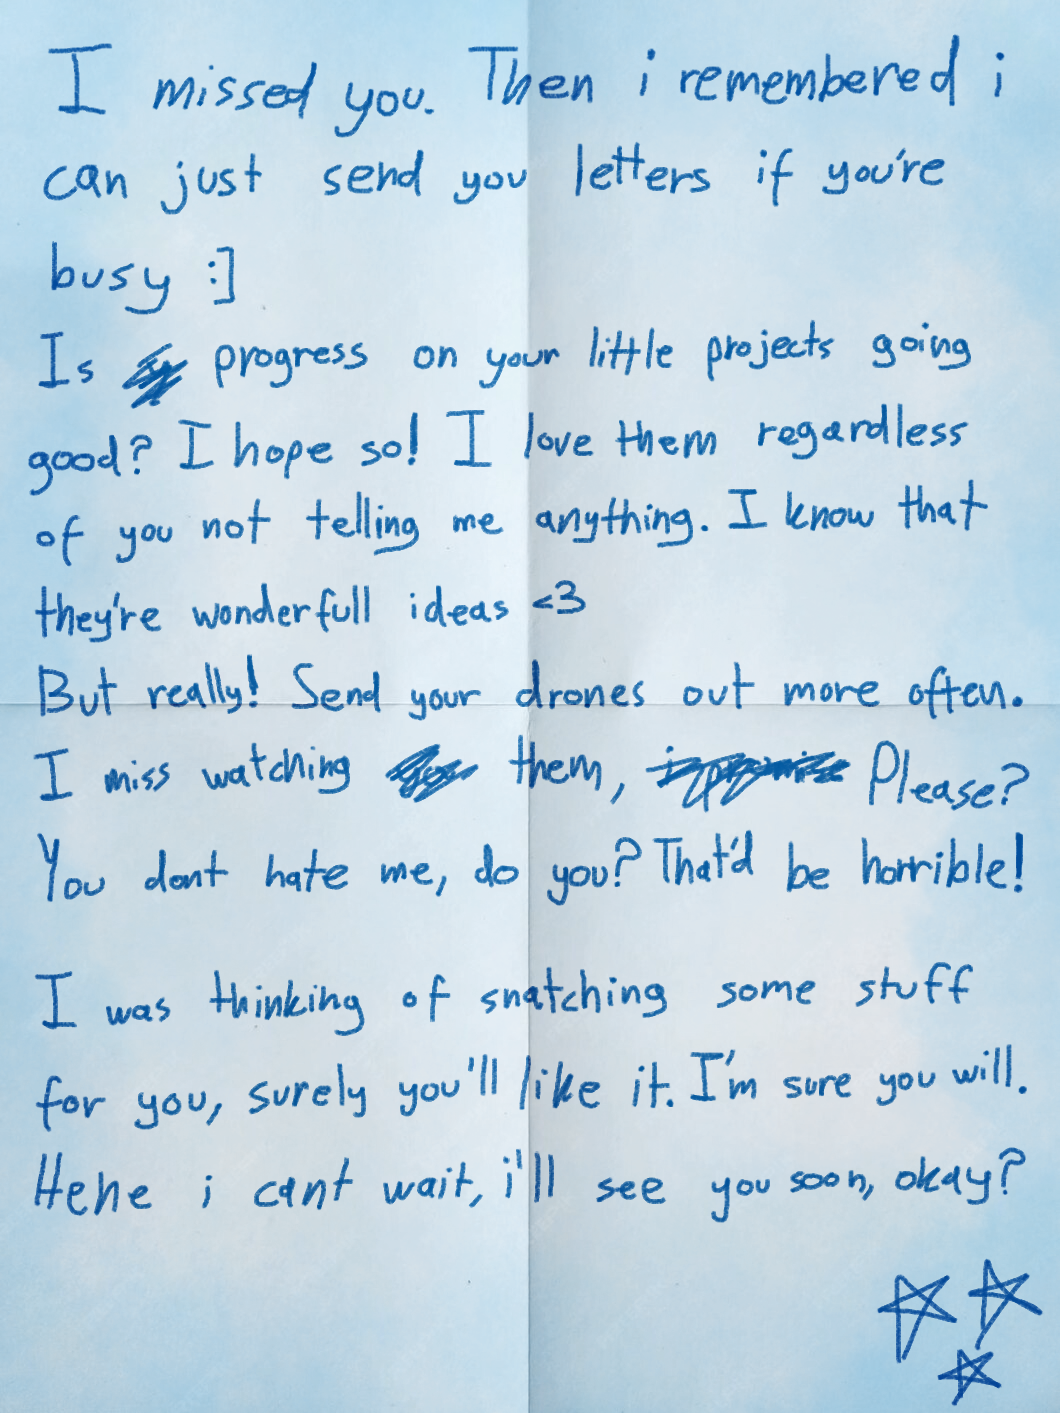 I missed you. Then i remembered i
can just send you letters if you're
busy :]
Is progress on your little projects going
good? I hope so! I love them regardless
of you not telling me anything. I know that
they're wonderfull ideas <3
But really! Send your drones out more often.
I miss watching them, Please?
You dont hate me, do you? That'd be horrible!
I was thinking of snatching some stuff
for you, surely you'll like it. I'm sure you will.
Hehe i cant wait, i'll see you soon, okay?